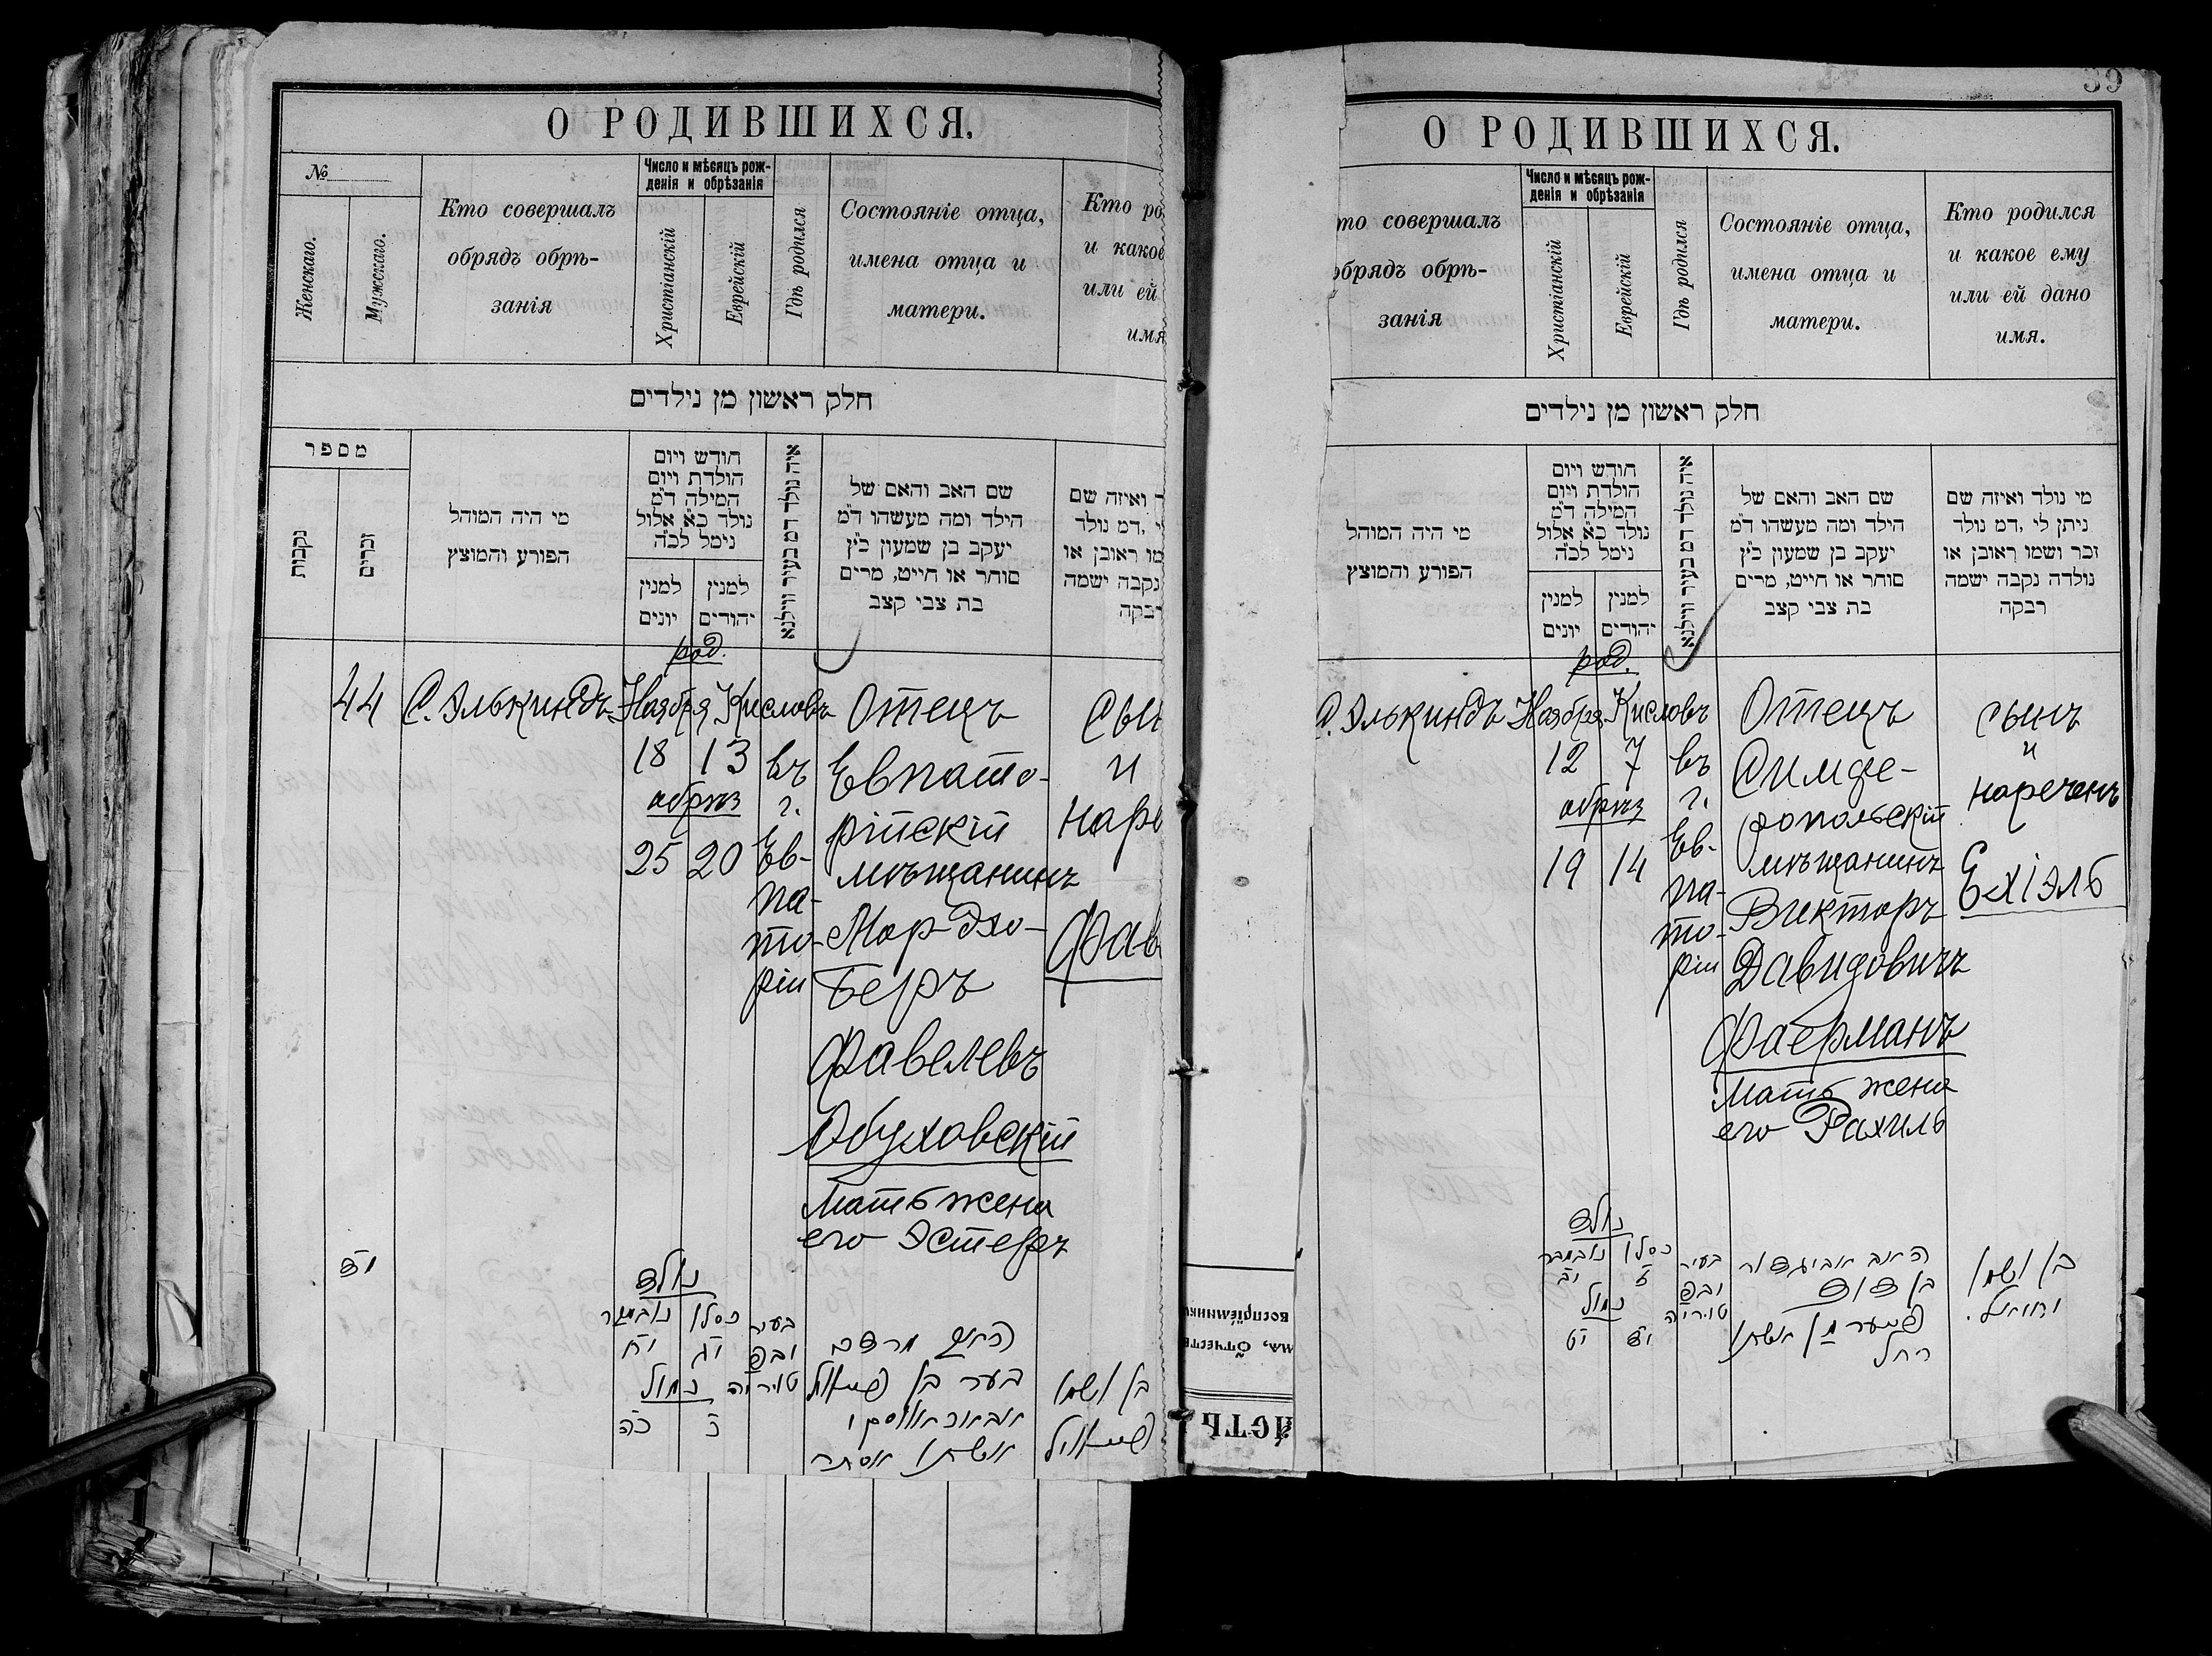 О РОДИВШИХСЯ.
№
Женскаго.
Мужскаго.
Кто совершалъ
обрядъ обрѣ-
занія
Число и мѣсяцъ рож-
денія и обрѣзанія
Христіанскій
Еврейскій
Гдѣ родился
Состояніе отца,
имена отца и
матери.
Кто ро
и какое
или ей
имя
חלק ראשון מן נילדים
מספר
נקבות
זכרים
מי היה המוהל
הפורע והמוצץ
חודש ויום
הולדת ויום
המילה ד"מ
נולד כ"א אלול
נימל לכ"ה
למנין
יונים
למנין
יהודים
איה נולד דמ בעיר ווילנא
שם האב והאם של
הילד ומה מעשהו ד"מ
יעקב בן שמעון כ"ץ
סוחר או חייט, מרים
בת צבי קצב
ר ואיזה שם
י ,דמ נולד
מו ראובן או
נקבה ישמה
רבקה
род.
44
С. Элькиндъ
Ноября
Кисловъ
18
13
обрѣз
25
20
въ
г.
Ев-
па-
то-
ріи
Отецъ
Евпато-
рійскій
мѣщанинъ
Мордхо-
Беръ
Фавелевъ
Обуховскій
Мать жена
его Эстеръ
сын
и
наре
Фав
מד
נולד
נובמבר
כסלו
יח
יג
נמול
כה
כ
בעיר
יוב፥
האב מרדכי
בער בן
אשתו אסתר
בן ושמו
О РОДИВШИХСЯ.
39
то совершалъ
обрядъ обрѣ-
занія
Число и мѣсяцъ рож-
денія и обрѣзанія
Христіанскій
Еврейскій
Гдѣ родился
Состояніе отца,
имена отца и
матери.
Кто родился
и какое ему
или ей дано
имя.
חלק ראשון מן נילדים
מי היה המוהל
הפורע והמוצץ
חודש ויום
הולדת ויום
המילה ד"מ
נולד כ"א אלול
נימל לכ"ה
למנין
יונים
למנין
יהודים
איה נולד דמ בעיר ווילנא
שם האב והאם של
הילד ומה מעשהו ד"מ
יעקב בן שמעון כ"ץ
סוחר או חייט, מרים
בת צבי קצב
מי נולד ואיזה שם
ניתן לי ,דמ נולד
זכר ושמו ראובן או
נולדה נקבה ישמה
רבקה
род.
С. Элькиндъ
Ноября
Кисловъ
12
7
обрѣз
19
14
въ
г.
Ев-
па-
то-
ріи
Отецъ
Симфе-
ропольскій
мѣщанинъ
Викторъ
Давидовичъ
Фаерманъ
Мать жена
его Рахиль
сынъ
и
нареченъ
Ехіэль
נולד
נובמבר
כסלו
יב
ז
נמול
יט
יד
בעיר
האב אביגדור
בן דוד
אשתו
רחל
בן ושמו
יחיאל.
воспріемнико
мя, отчеств
АСТЬ